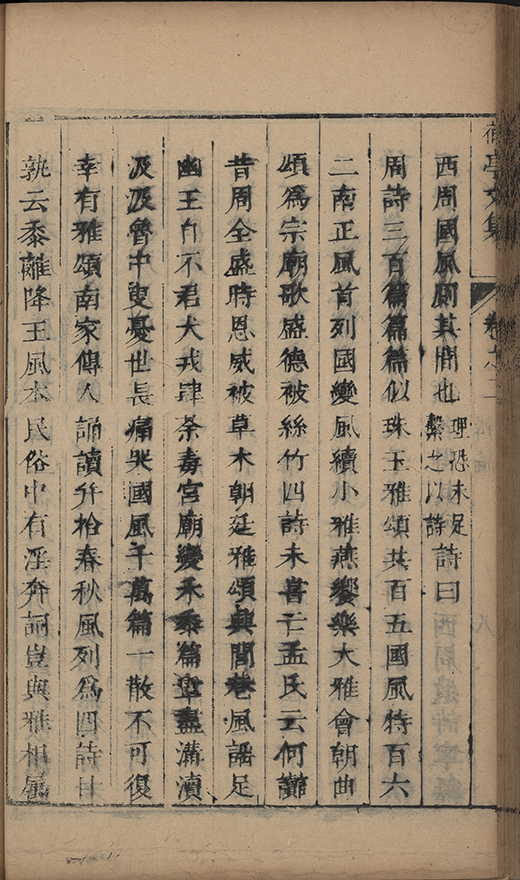 亭文集 卷
西周國風厠其間也理恐未足繫之以詩詩曰
周詩三百篇篇篇似珠玉雅頌共百五國風特百六
二南正風首列國變風續小雅燕饗樂大雅會朝曲
頌為宗廟歌盛德被絲竹四詩未嘗亡孟氏云何讟
昔周全盛時恩威被草木朝廷雅頌興閭巷風謡足
幽王自不君犬戎肆荼毒宮廟變禾黍篇盡溝瀆
汲汲魯中叟憂世長痛哭國風千萬篇一散不可復
幸有雅頌南家傳人誦讀并拾春秋風列為四詩
孰云黍離降王風本民俗中有淫奔詞豈與雅相屬